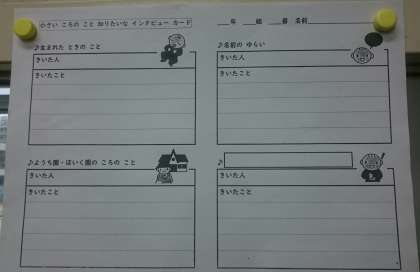 小さい ころの こと 知りたいな インタビュー カード
年 組 番 名前
♪生まれた ときの こと
きいた人
きいたこと
♪名前の ゆらい
きいた人
きいたこと
♪ようち園・ほいく園の ころの こと
きいた人
きいたこと
♪
きいた人
きいたこと